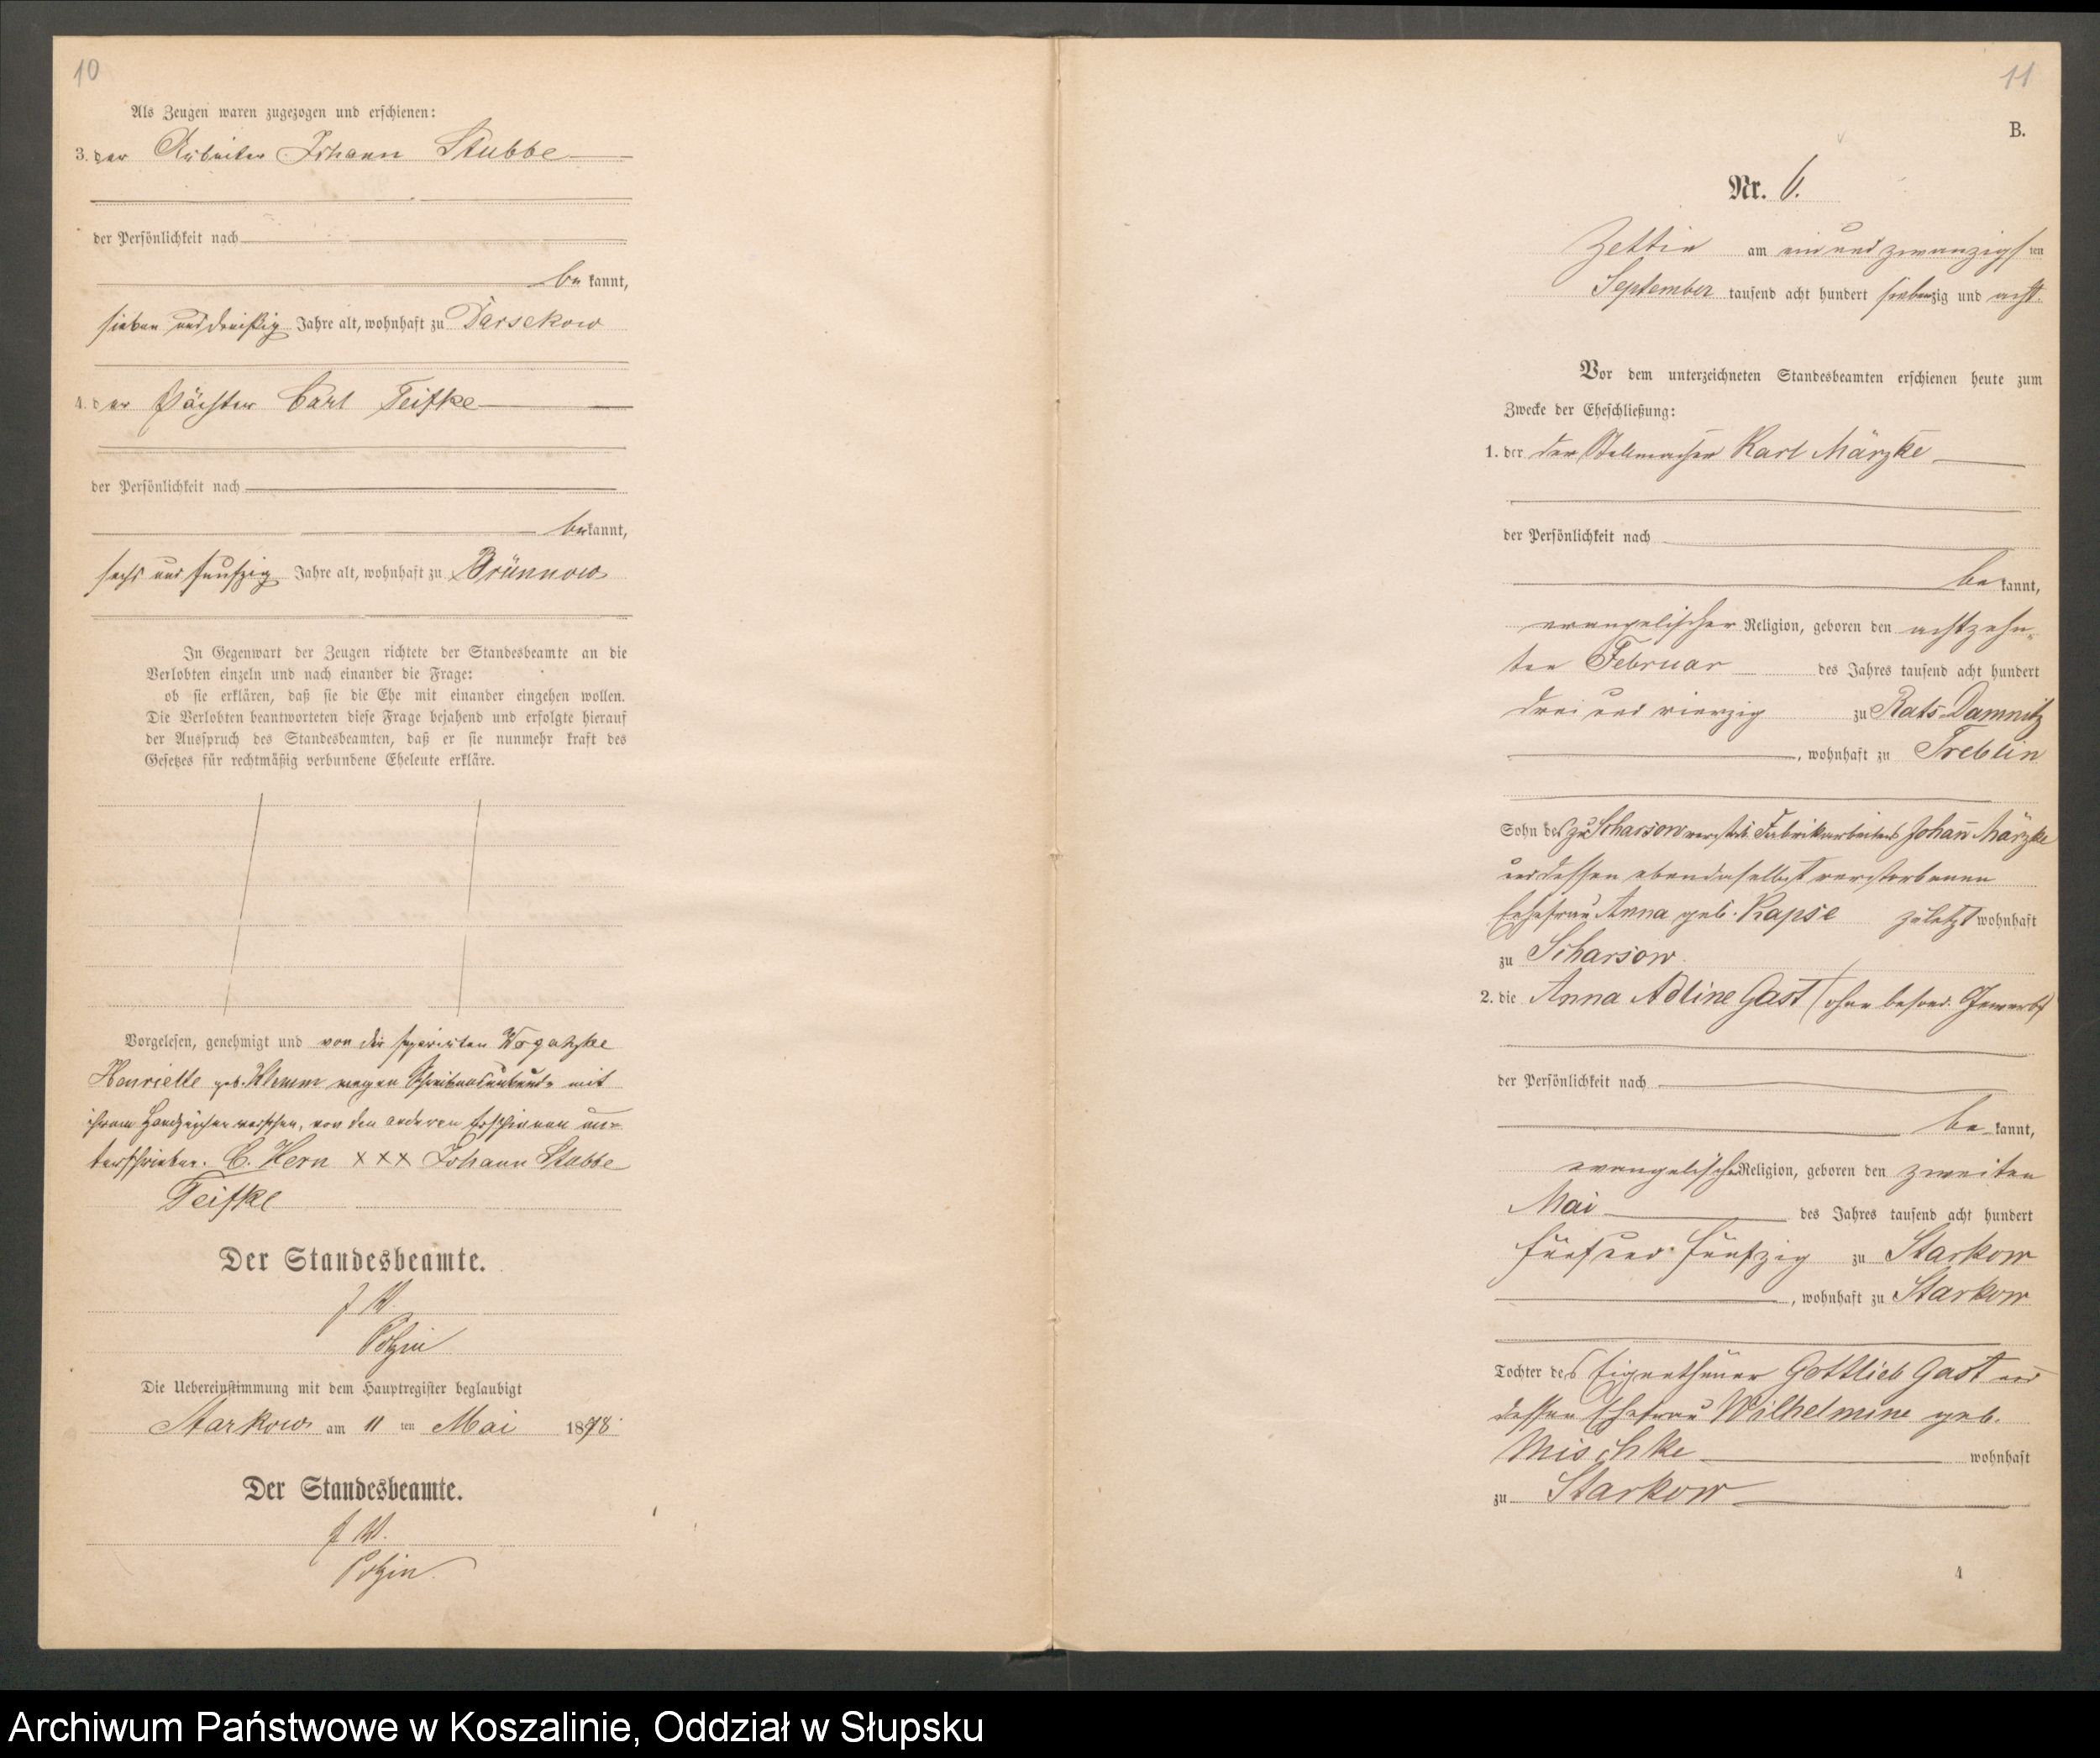 10
Als Zeugen waren zugezogen und erschienen:
3. der Arbeiter Johann Stubbe
der Persönlichkeit nach
be kannt,
sieben und dreißig Jahre alt, wohnhaft zu Darsekow
4. der Pächter Carl Teifke
der Persönlichkeit nach
bekannt,
sechs und funfzig Jahre alt, wohnhaft zu Brünnow
In Gegenwart der Zeugen richtete der Standesbeamte an die
Verlobten einzeln und nach einander die Frage:
ob sie erklären, daß sie die Ehe mit einander eingehen wollen.
Die Verlobten beantworteten diese Frage bejahend und erfolgte hierauf
der Ausspruch des Standesbeamten, daß er sie nunmehr kraft des
Gesetzes für rechtmäßig verbundene Eheleute erkläre.
Vorgelesen, genehmigt und von der separirten
Henriette geb. Klemm wegen mit
ihrem Handzeichen versehen, von den anderen Erschienen un-
terschrieben. C. Kern XXX Johann Stubbe
Teifke
Der Standesbeamte.
J. V.
Die Uebereinstimmung mit dem Hauptregister beglaubigt
Starkow am 11 ten Mai 1878
Der Standesbeamte.
J. V.
11
B.
Nr. 6.
Zettin am ein und zwanzigsten
September tausend acht hundert siebenzig und acht.
Vor dem unterzeichneten Standesbeamten erschienen heute zum
Zwecke der Eheschließung:
1. der der Stellmacher Karl Märzke
der Persönlichkeit nach
be kannt,
evangelischer Religion, geboren den achtzehn-
ten Februar des Jahres tausend acht hundert
drei und vierzig zu Rats-Damnitz
, wohnhaft zu Treblin
Sohn des zu Scharsow verstorb. Fabrikarbeiters Johann Märzke
und dessen ebendaselbst verstorbenen
Ehefrau Anna geb. Rapse zuletzt wohnhaft
zu Scharsow.
2. die Anna Adline Gast (ohne besond. Gewerbe)
der Persönlichkeit nach
be kannt,
evangelischer Religion, geboren den zweiten
Mai des Jahres tausend acht hundert
fünf und fünfzig zu Starkow
, wohnhaft zu Starkow
Tochter des Eigenthümer Gottlieb Gast und
dessen Ehefrau Wilhelmine geb.
Mischke wohnhaft
zu Starkow
Archiwum Państwowe w Koszalinie, Oddział w Słupsku